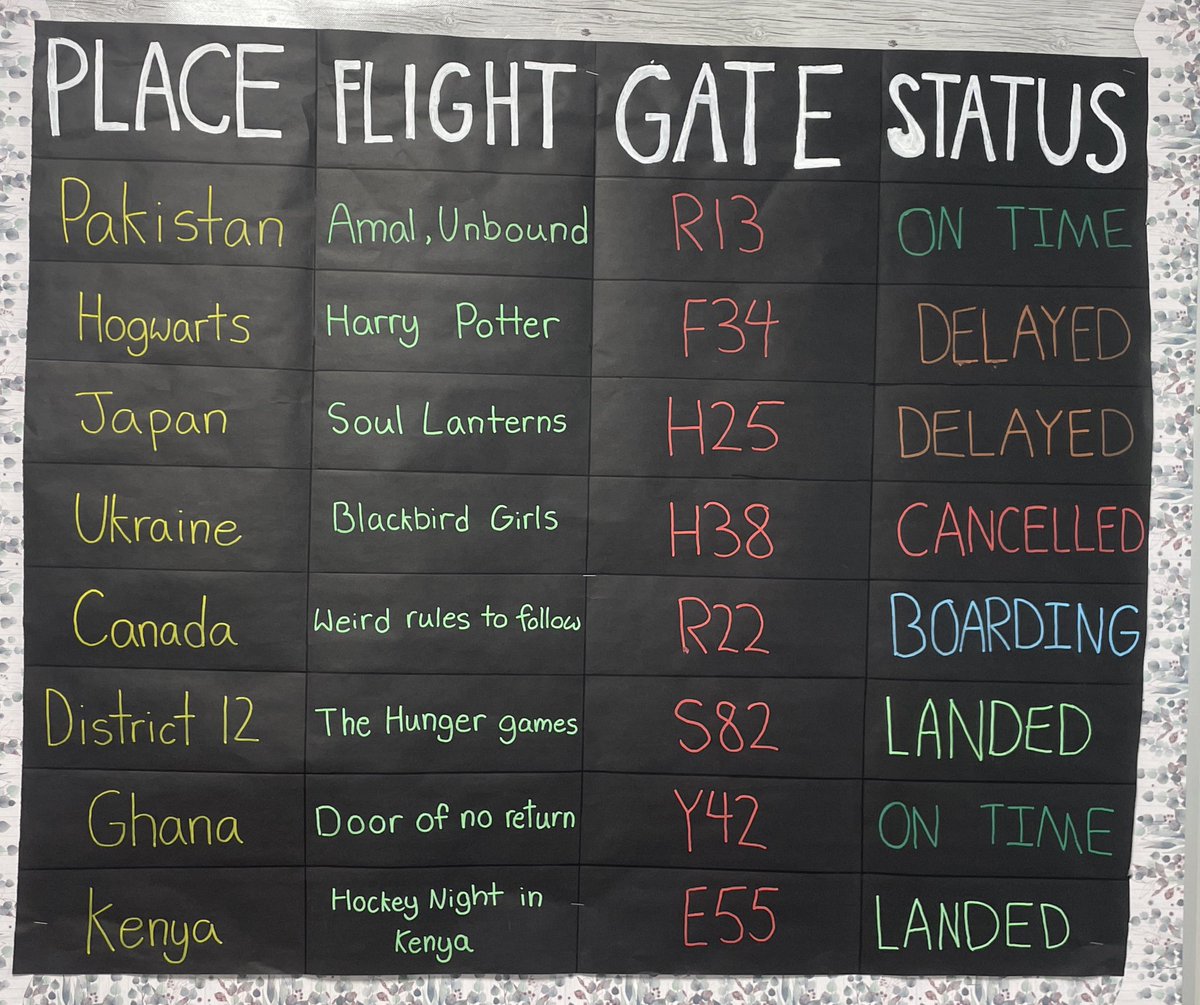 PLACE FLIGHT GATE STATUS
Pakistan Amal, Unbound R13 ON TIME
Hogwarts Harry Potter F34 DELAYED
Japan Soul Lanterns H25 DELAYED
Ukraine Blackbird Girls H38 CANCELLED
Canada Weird rules to follow R22 BOARDING
District 12 The Hunger games S82 LANDED
Ghana Door of no return Y42 ON TIME
Kenya Hockey Night in E55 LANDED
Kenya